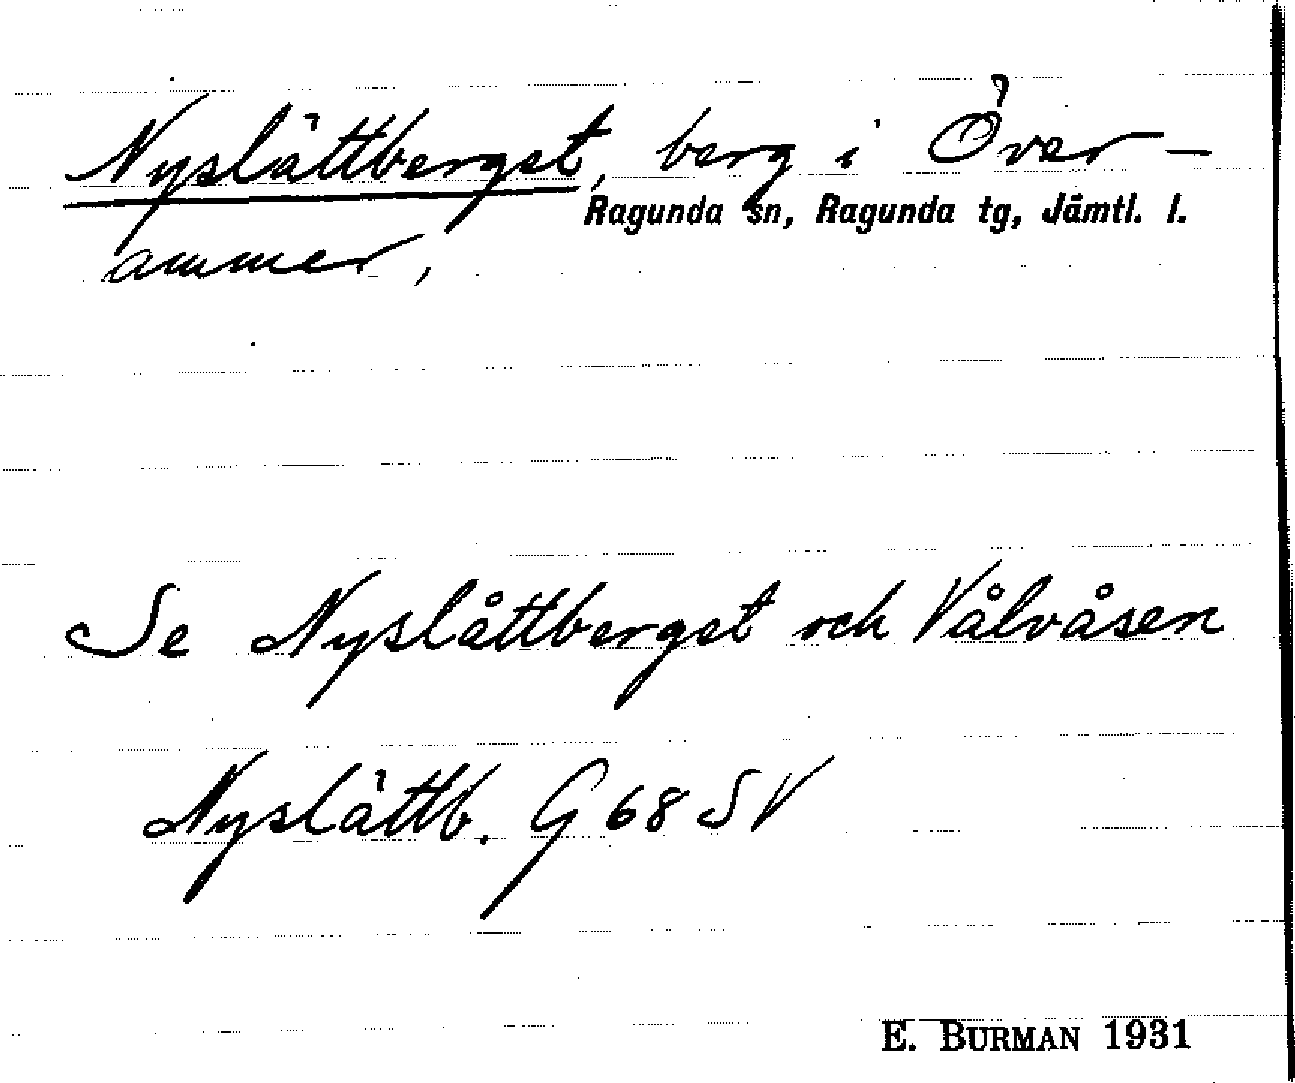 Nyslättberget, berg i Över-
Ragunda sn, Ragunda tg, Jämtl. l.
ammer,
Se Nyslåttberget och Vålvåsen
Nyslättb. G 68 SV
E. BURMAN 1931